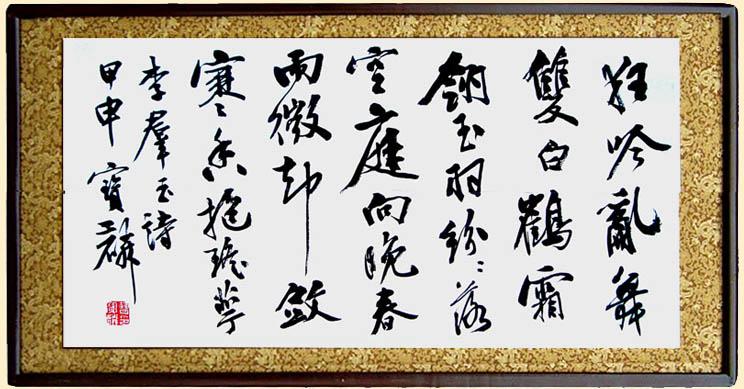 狂吟亂舞
雙白鶴霜
翎玉羽紛〻落
空庭向晚春
雨微却斂
寒香抱瑤萼
李羣玉詩
甲申寶